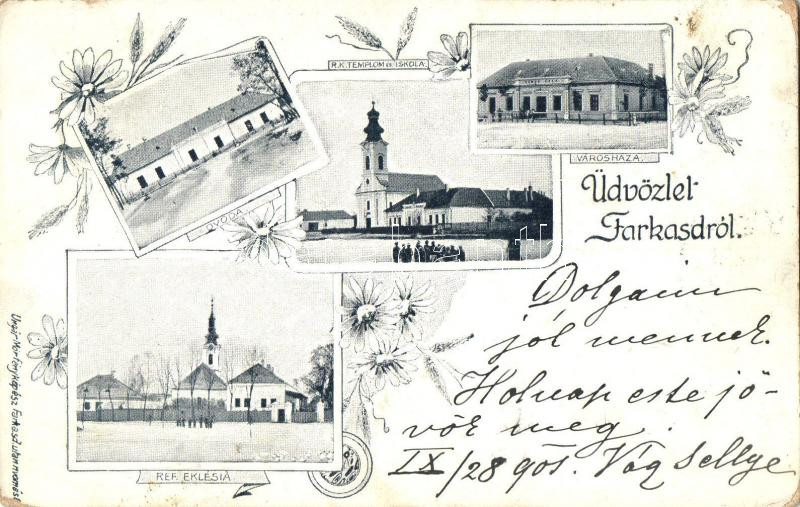 R.K. TEMPLOM és ISKOLA.
VÁROSHÁZA.
ÓVODA.
Üdvözlet
Farkasdról.
REF. EKLÉSIA
Dolgaim
jól mennek.
Holnap este jö-
vök meg.
IX/28 905. Vág Sellye